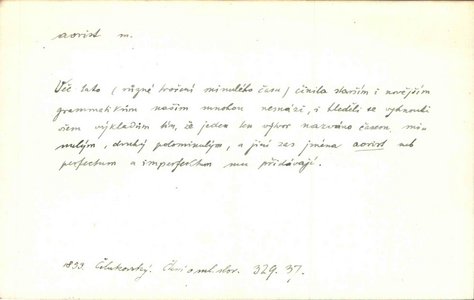 aorist m.
Věc tato / různé tvoření minulého času / činila starším i novějším
grammatikům našim mnohou nesnázi, i hleděli se vyhnouti
všem výkladům tím, že jeden ten výtvor nazváno časem mi-
nulým, druhý polominulým, a jiní zas jména aorist neb
perfectum a imperfektum mu přidávají.
1853. Čelakovský. Čtení o ml. slov. 329. 37.